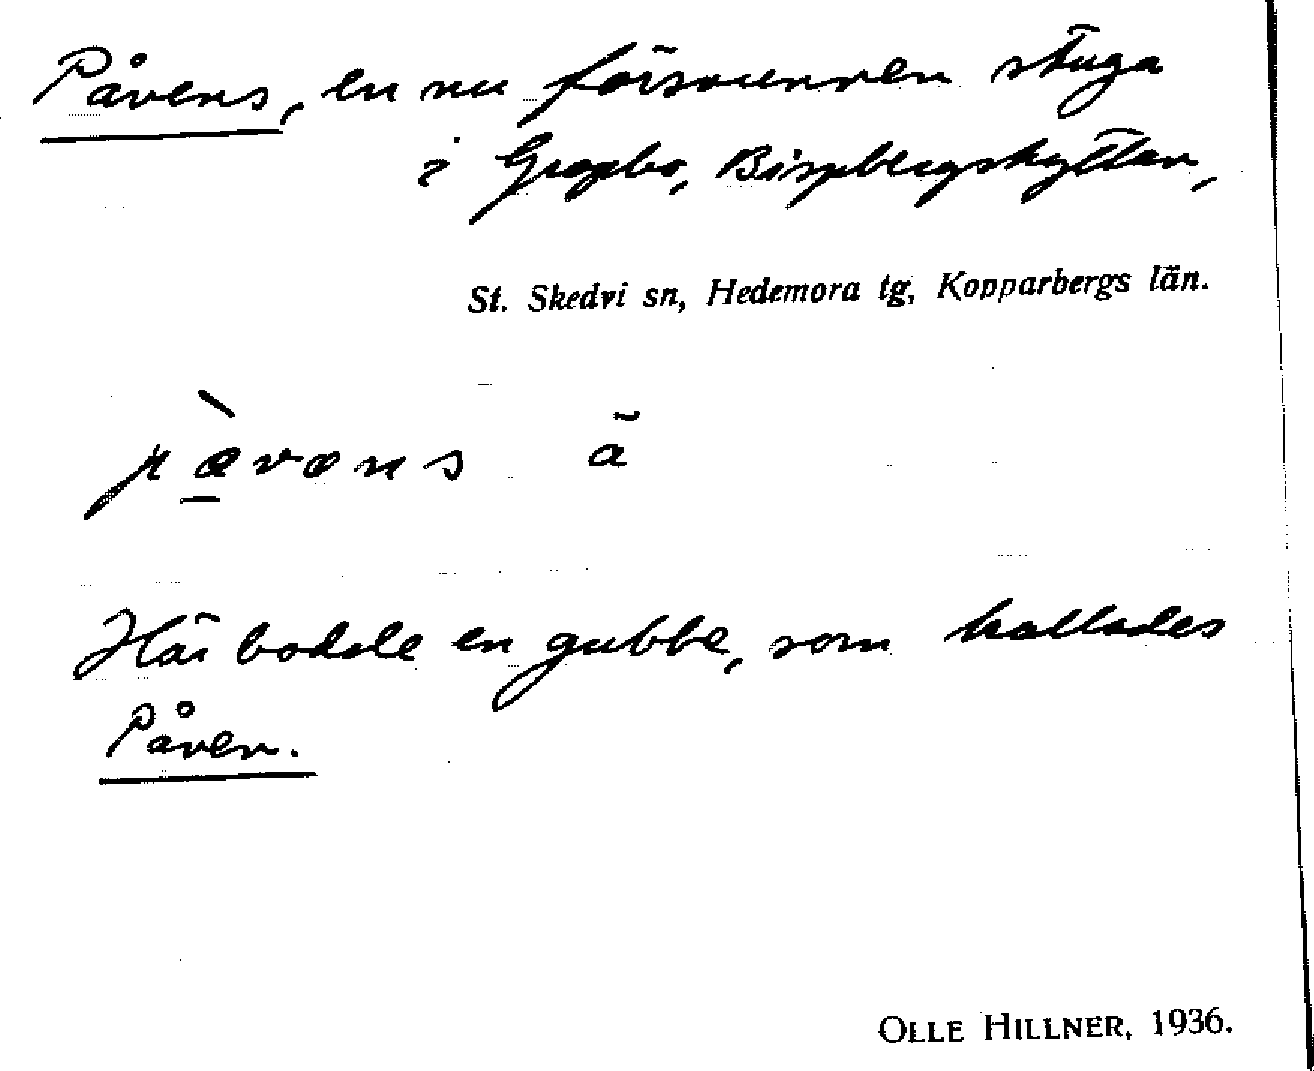 Påvens, en nu försvunnen stuga
i Gropbo, Bispbergshyttan,
St. Skedvi sn, Hedemora tg, Kopparbergs län.
Här bodde en gubbe, som kallades
Påven.
OLLE HILLNER, 1936.